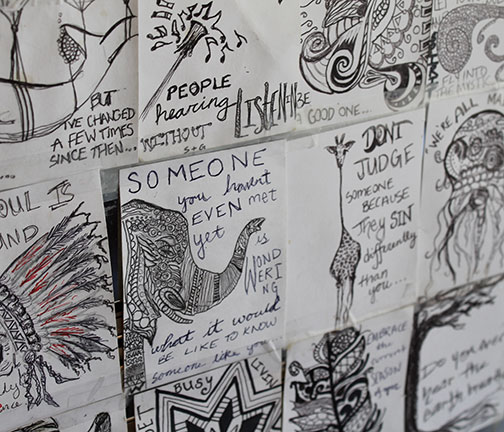 BUT
I'VE CHANGED
A FEW TIMES
SINCE THEN...
PEOPLE
hearing
WITHOUT
LISTENING
S+G
A GOOD ONE...
FLY INTO
THE
SOUL IS
SOMEONE
you havent
EVEN met
yet
is
WONDERING
what it would
BE LIKE TO KNOW
someone like you...
DONT
JUDGE
SOMEONE
BECAUSE
They SIN
differently
than
you...
WE'RE ALL
BUSY
LIVEN
EMBRACE
the current
SEASON
of
Do you
the
earth